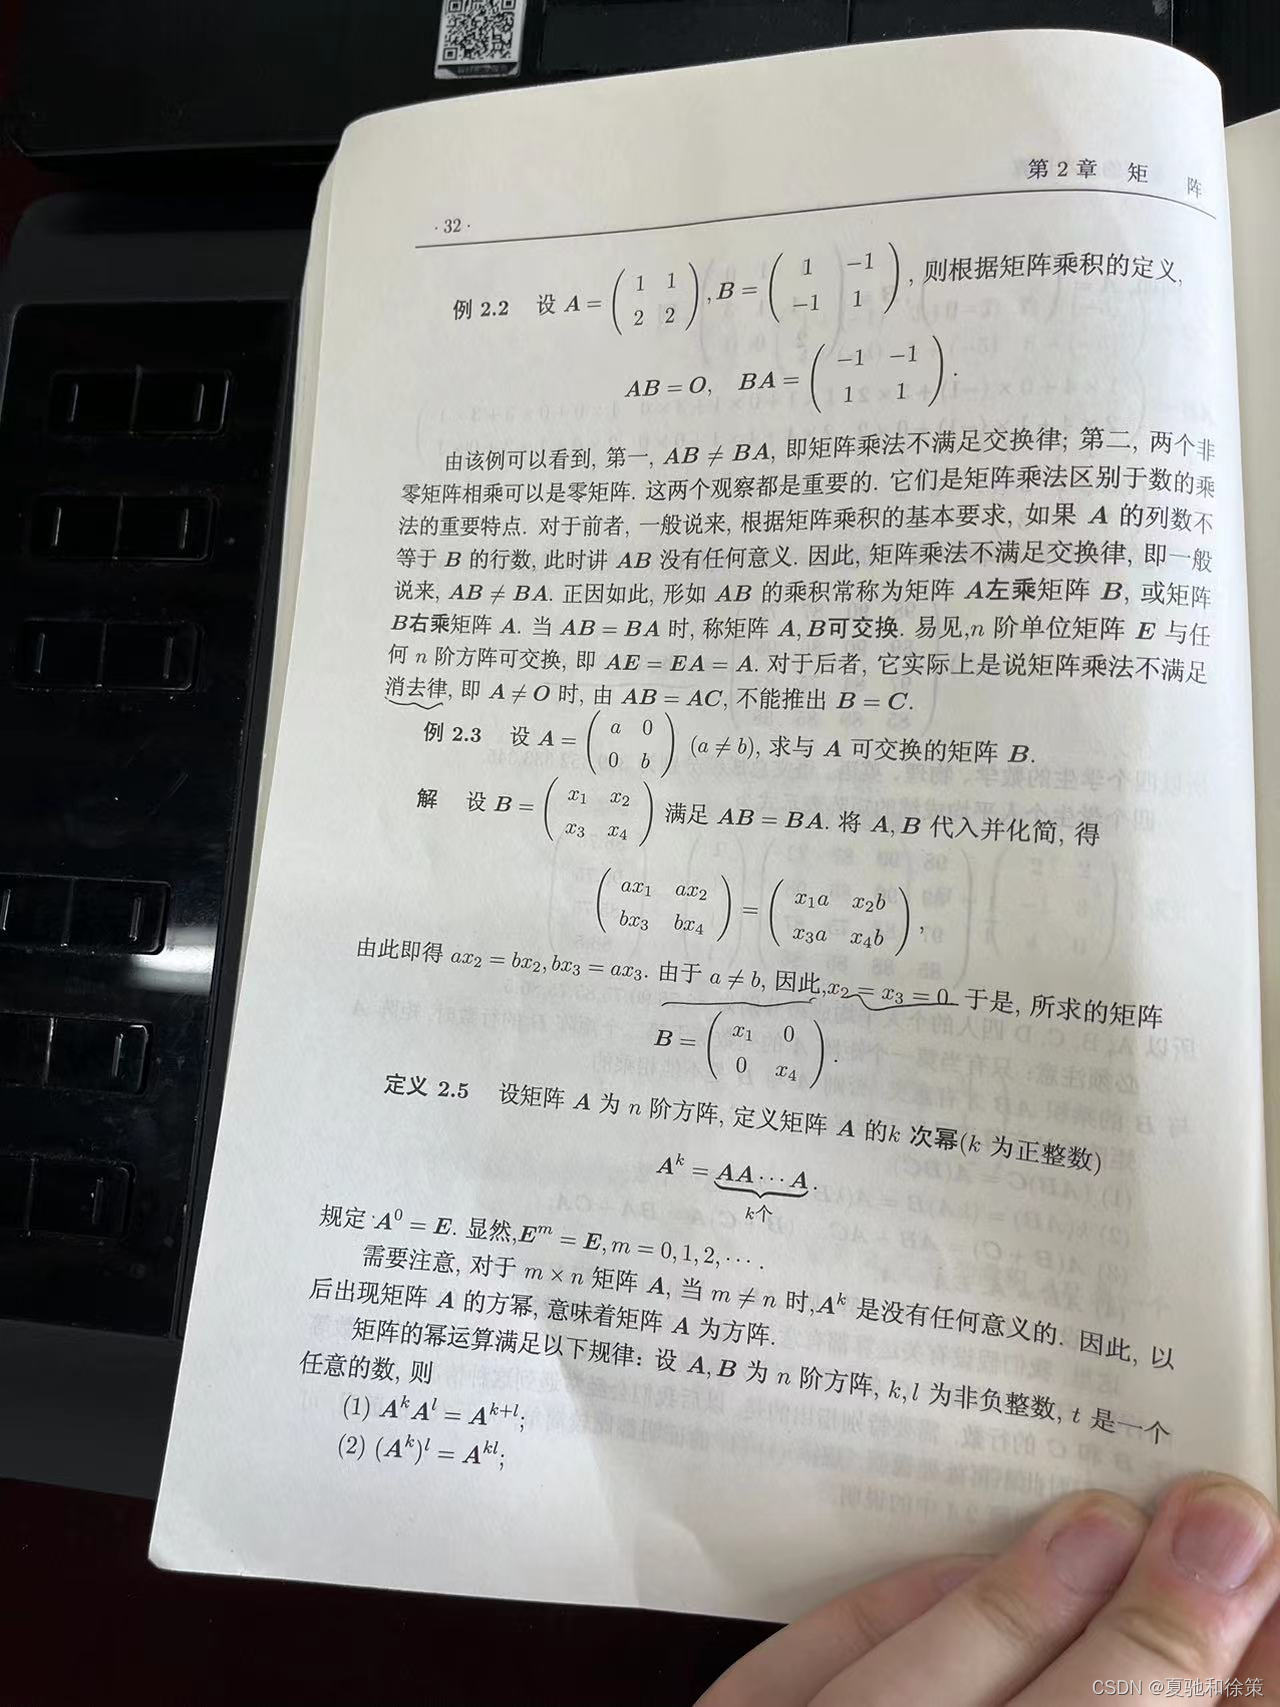 第 2 章 矩 阵
· 32 ·
例 2.2 设 A = ( 1 1 ; 2 2 ), B = ( 1 −1 ; −1 1 ), 则根据矩阵乘积的定义,
AB = O, BA = ( −1 −1 ; 1 1 ).
由该例可以看到, 第一, AB ≠ BA, 即矩阵乘法不满足交换律; 第二, 两个非
零矩阵相乘可以是零矩阵. 这两个观察都是重要的. 它们是矩阵乘法区别于数的乘
法的重要特点. 对于前者, 一般说来, 根据矩阵乘积的基本要求, 如果 A 的列数不
等于 B 的行数, 此时讲 AB 没有任何意义. 因此, 矩阵乘法不满足交换律, 即一般
说来, AB ≠ BA. 正因如此, 形如 AB 的乘积常称为矩阵 A左乘矩阵 B, 或矩阵
B右乘矩阵 A. 当 AB = BA 时, 称矩阵 A, B可交换. 易见,n 阶单位矩阵 E 与任
何 n 阶方阵可交换, 即 AE = EA = A. 对于后者, 它实际上是说矩阵乘法不满足
消去律, 即 A ≠ O 时, 由 AB = AC, 不能推出 B = C.
例 2.3 设 A = ( a 0 ; 0 b ) (a ≠ b), 求与 A 可交换的矩阵 B.
解 设 B = ( x₁ x₂ ; x₃ x₄ ) 满足 AB = BA. 将 A, B 代入并化简, 得
( ax₁ ax₂ ; bx₃ bx₄ ) = ( x₁a x₂b ; x₃a x₄b ),
由此即得 ax₂ = bx₂, bx₃ = ax₃. 由于 a ≠ b, 因此,x₂ = x₃ = 0 于是, 所求的矩阵
B = ( x₁ 0 ; 0 x₄ ).
定义 2.5 设矩阵 A 为 n 阶方阵, 定义矩阵 A 的k 次幂(k 为正整数)
Aᵏ = AA···A.
k个
规定 A⁰ = E. 显然,Eᵐ = E, m = 0, 1, 2, ··· .
需要注意, 对于 m × n 矩阵 A, 当 m ≠ n 时,Aᵏ 是没有任何意义的. 因此, 以
后出现矩阵 A 的方幂, 意味着矩阵 A 为方阵.
矩阵的幂运算满足以下规律: 设 A, B 为 n 阶方阵, k, l 为非负整数, t 是一个
任意的数, 则
(1) AᵏAˡ = Aᵏ⁺ˡ;
(2) (Aᵏ)ˡ = Aᵏˡ;
CSDN @夏驰和徐策